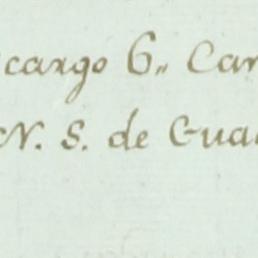 cargo 6,, Car
N. S. de Gua